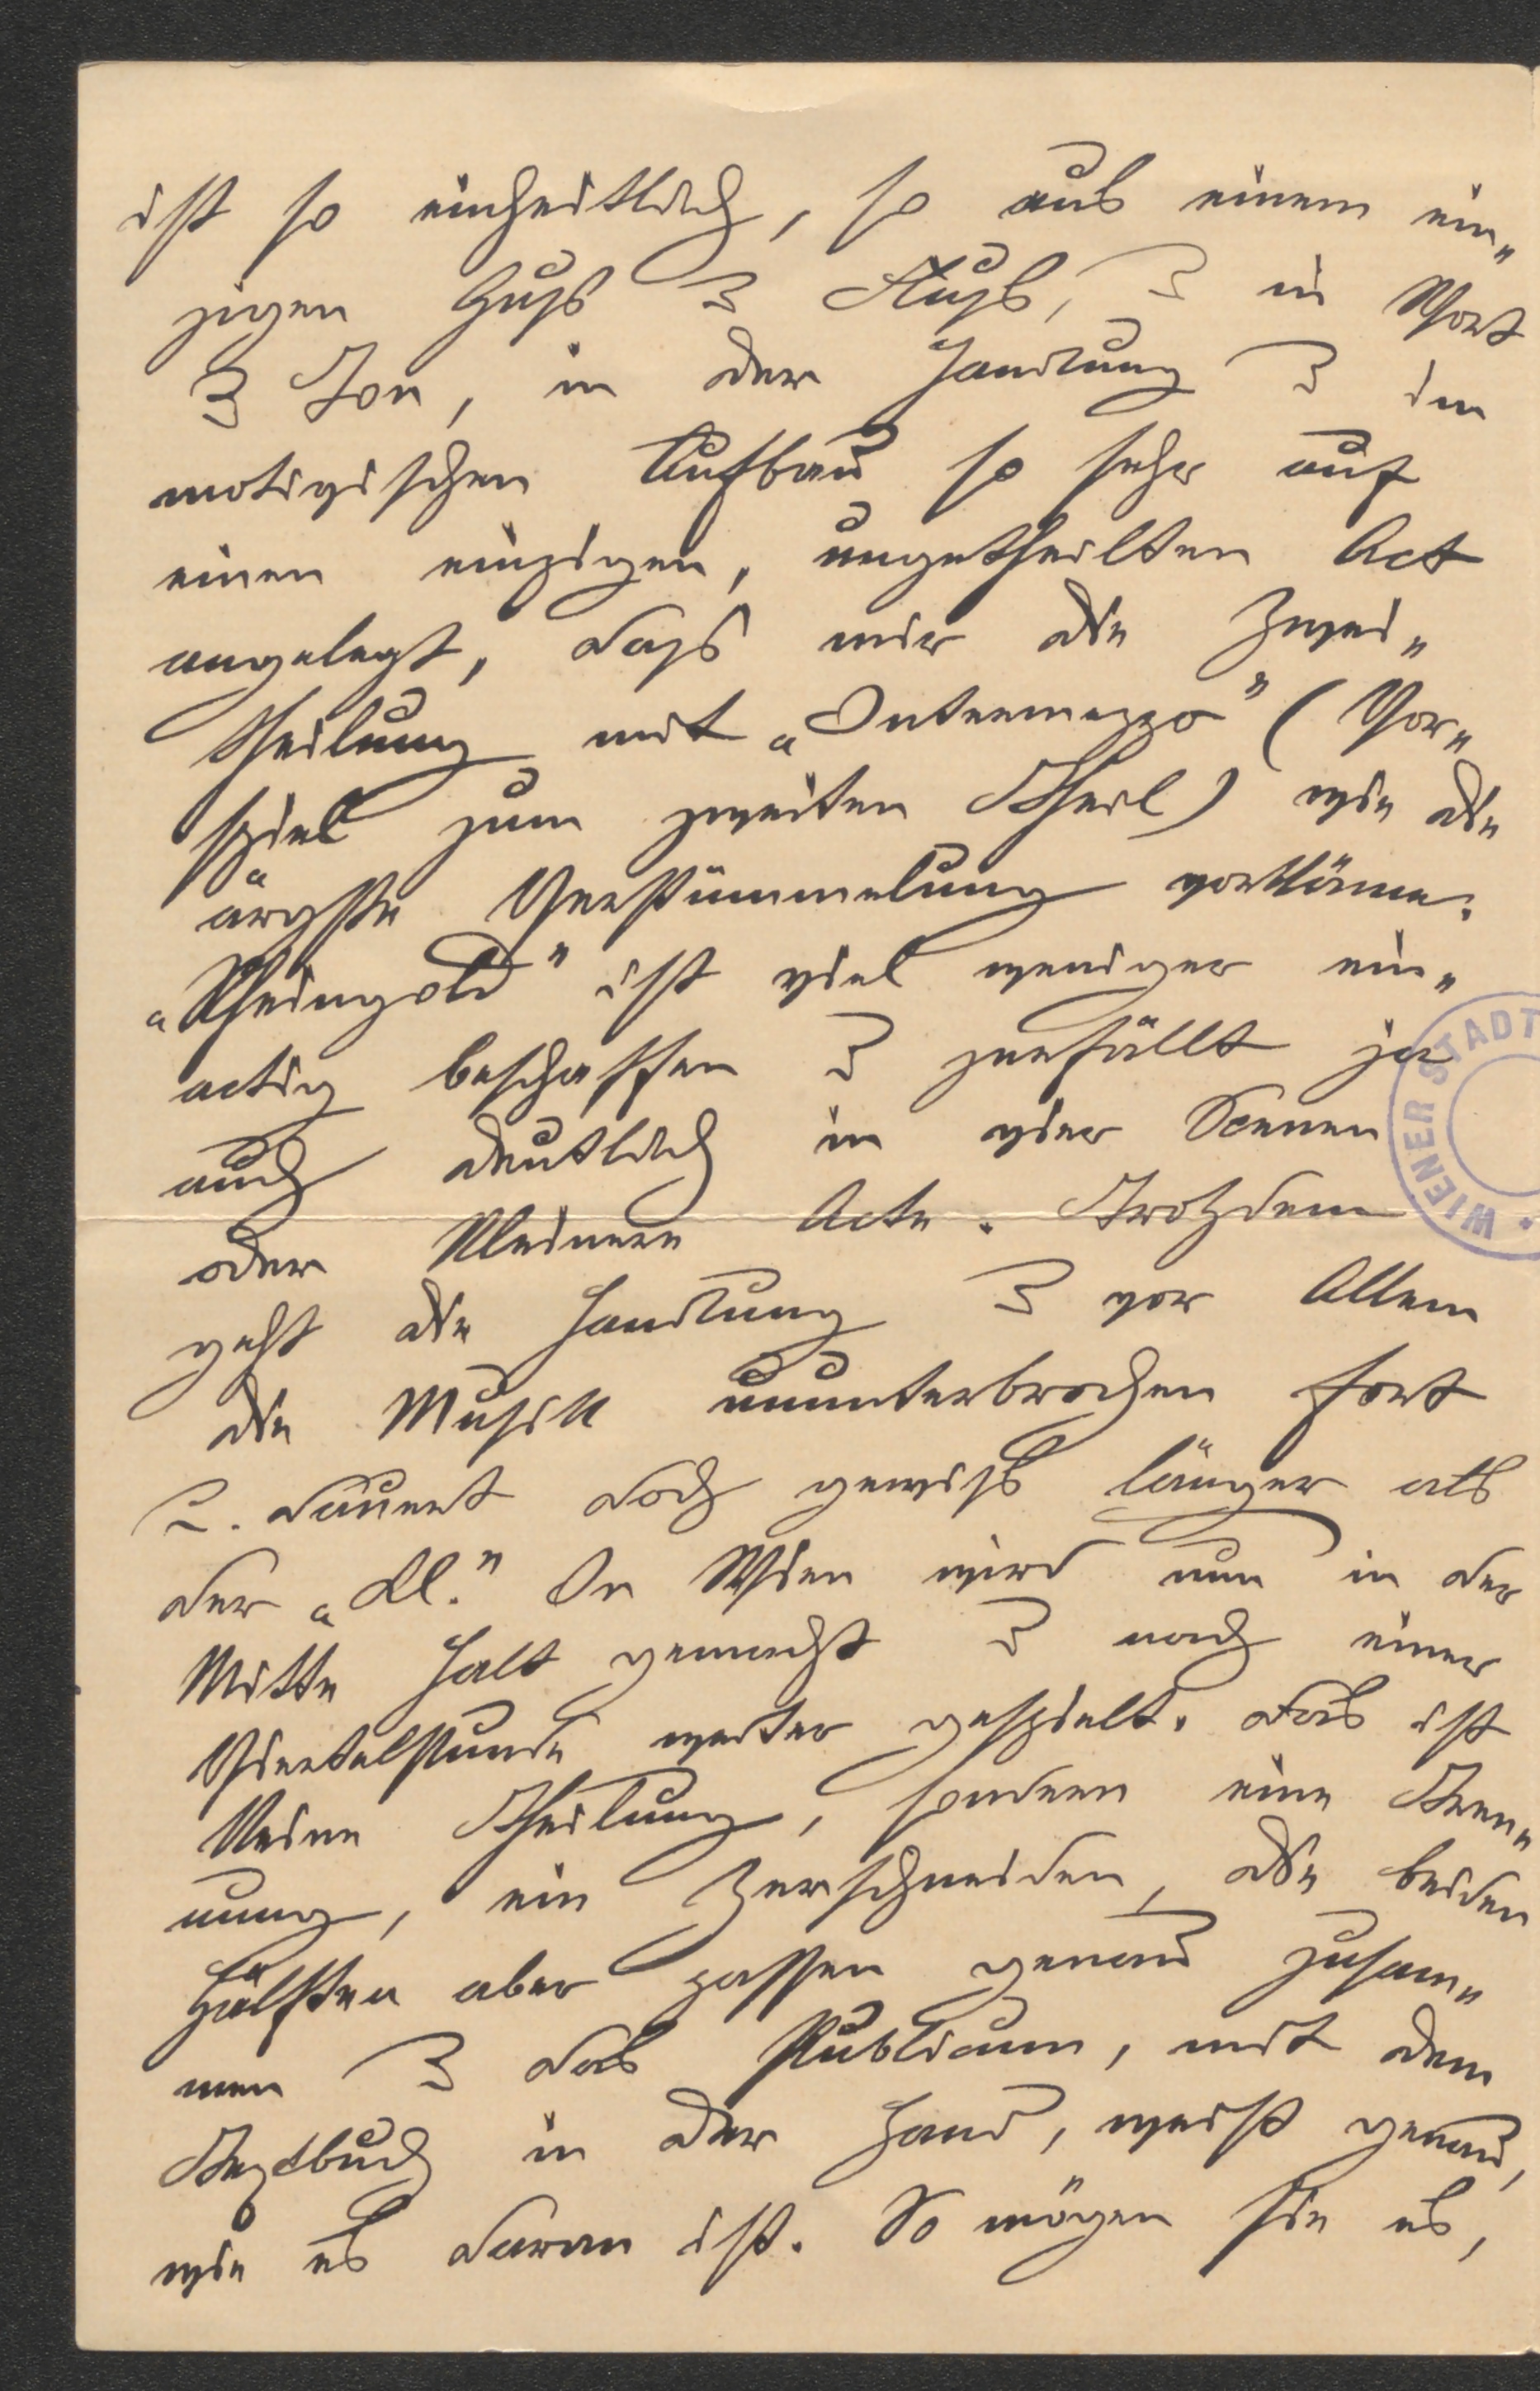 ist so einheitlich, so aus einem ein„
zigen Guß & Fluß, & in Wort
& Ton, in der Handlung & im
motivischen Aufbau so sehr auf
einen einzigen, ungetheilten Act
angelegt, daß mir die Zwei„
theilung mit „Intermezzo“ (Vor„
spiel zum zweiten Theil) wie die
ärgste Verstümmelung vorkäme.
„Rheingold“ ist viel weniger ein„
actig beschaffen & zerfällt ja
auch deutlich in vier Scenen
oder kleinere Acte. Trotzdem
geht die Handlung & vor Allem
die Musik ununterbrochen fort
u. dauert doch gewiß länger als
der „Kl.“ In Wien wird nun in der
Mitte Halt gemacht & nach einer
Viertelstunde weiter gespielt. Das ist
keine Theilung, sondern eine Tren„
nung, ein Zerschneiden, die beiden
Hälften aber passen genau zusam„
men & das Publicum, mit dem
Textbuch in der Hand, weiß genau,
wie es daran ist. So mögen sie es,
WIENER STADT